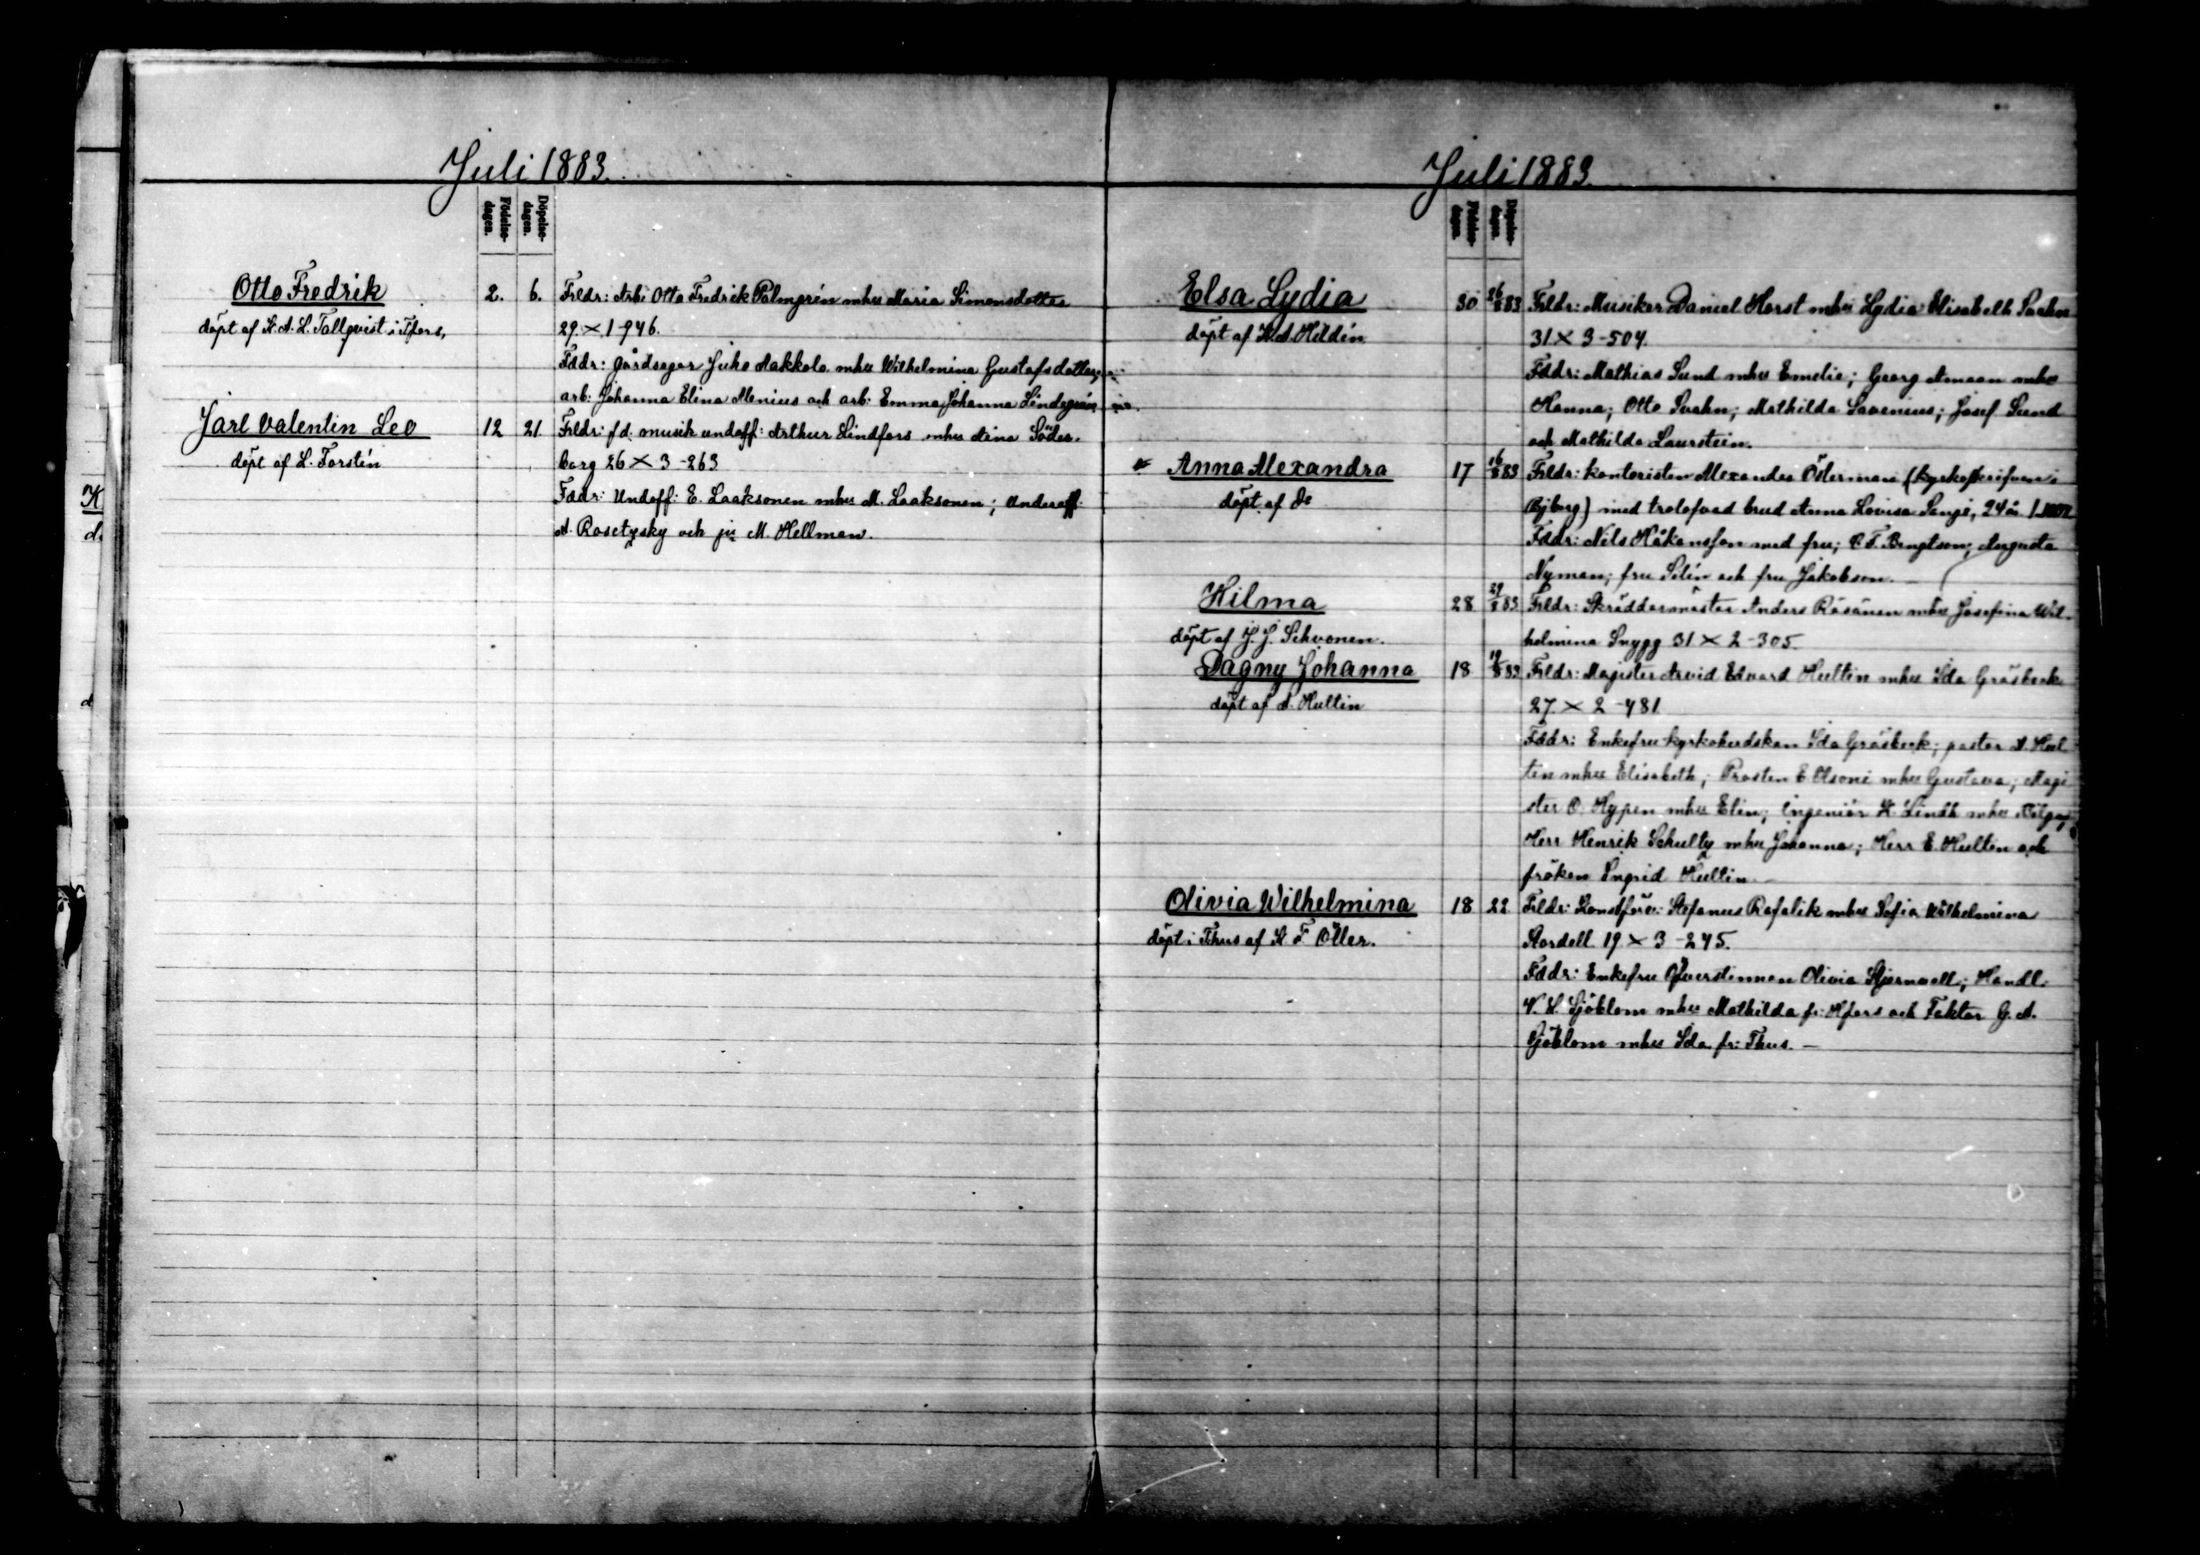 Juli 1883.
Födelse-dagen.
Döpelse-dagen.
Otto Fredrik
döpt af K. A. L. Tallqvist i Tfors.
2. 6.
Frldr: Arb: Otto Fredrik Palmgrén mhu Maria Simonsdotter
29. × 1-946.
Fddr: gårdsegar Juho Makkola mhu Wilhelmina Gustafsdotter
arb: Johanna Elina Menius och arb: Emma Johanna Lindegrén
Jarl Valentin Leo
döpt af L. Forstén
12 21.
Frldr: f d. musik undoff: Arthur Lindfors mhu Aina Söder-
borg 26 × 3-263
Fddr: Undoff: E. Laaksonen mhu M. Laaksonen; Underoff:
A. Rosetzsky och M. Hellman.
Juli 1883.
Födelse-dagen.
Döpelse-dagen.
Elsa Lydia
döpt af K. A. Hildén
30 26/8 83
Frldr: Musiker Daniel Horst mhu Lydia Elisabeth Svahn
31 × 3-504.
Fddr: Mathias Sund mhu Emelie; Georg Amaan mhu
Hanna; Otto Svahn; Mathilda Savenius; Josef Sund
och Mathilda Laurstein.
Anna Alexandra
döpt af do
17 16/8 83
Frldr: kontoristen Alexander Österman (kyrkoskrifven i
Bjborg) med trolofvad brud Anna Lovisa 24 år
Fddr: Nils Håkansson med fru; C. F. Bengtson; Augusta
Nyman; fru Selin och fru Jakobson.
Hilma
döpt af J. J. Sihvonen.
28 29/8 83
Frldr: Skräddarmäster Anders Räsänen mhu Josefina Wil-
helmina Snygg 31 × 2-305.
Dagny Johanna
döpt af A. Hultin
18 19/8 83
Frldr: Magister Arvid Edvard Hultin mhu Ida Gräsbeck
27. × 2-481.
Fddr: Enkefru kyrkoherdskan Ida Gräsbeck; pastor A. Hul-
tin mhu Elisabeth; Prosten E. Olsoni mhu Gustava; Magi-
ster O. Hypen mhu Elin; ingeniör K. Lindh mhu
Herr Henrik Schultz mhu Johanna; Herr E. Hultin och
fröken Ingrid Hultin.
Olivia Wilhelmina
döpt i Thus af K F Öller.
18 22
Frldr: Konstförv: Stefanus Rafalik mhu Sofia Wilhelmina
Nordell 19 × 3-245.
Fddr: Enkefru Öfverstinnan Olivia Stjernvall; Handl:
V. L. Sjöblom mhu Mathilda fr: Hfors och Faktor G. A.
Sjöblom mhu Ida fr: Thus. —